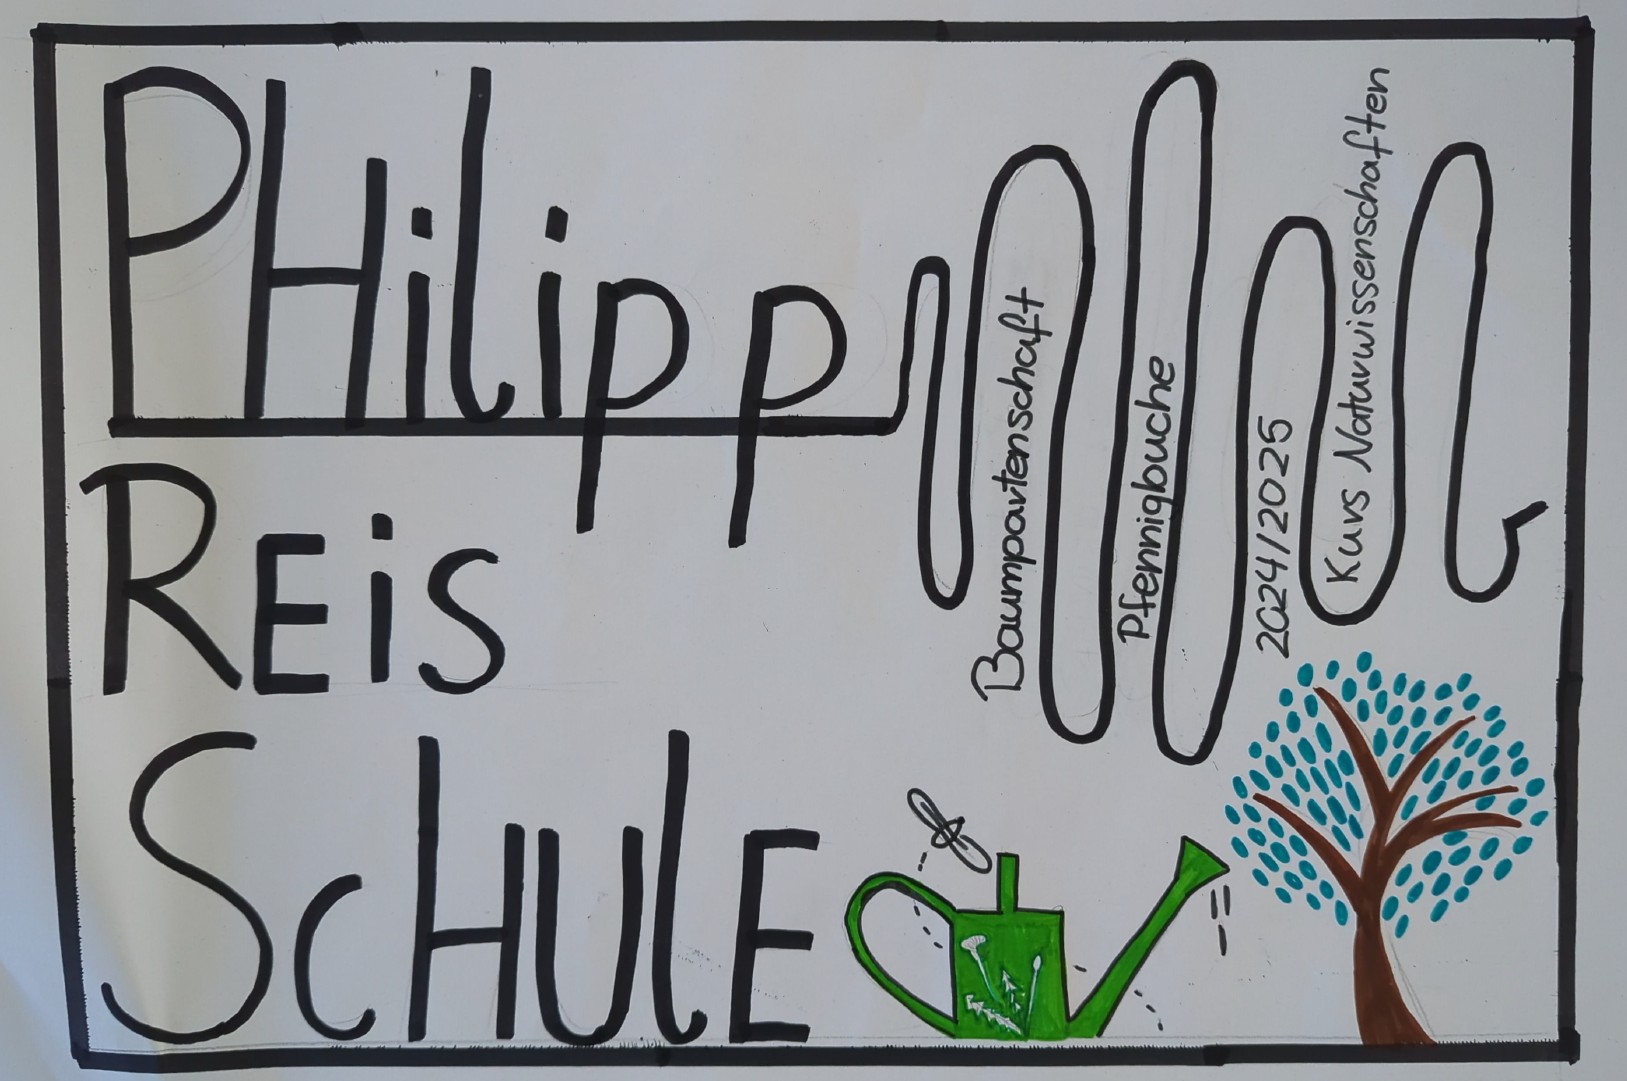 PHilipp
REiS
ScHUlE
Baumpartenschaft
Pfennigbuche
2024/2025
Kurs Naturwissenschaften